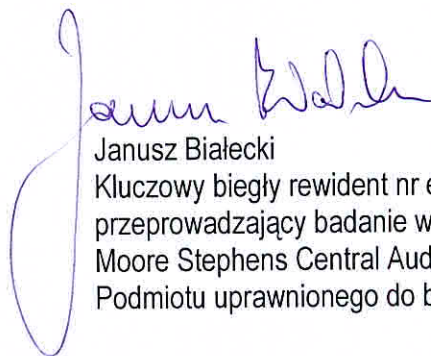 Janusz Białecki
Kluczowy biegły rewident nr e
przeprowadzający badanie w
Moore Stephens Central Aud
Podmiotu uprawnionego do b